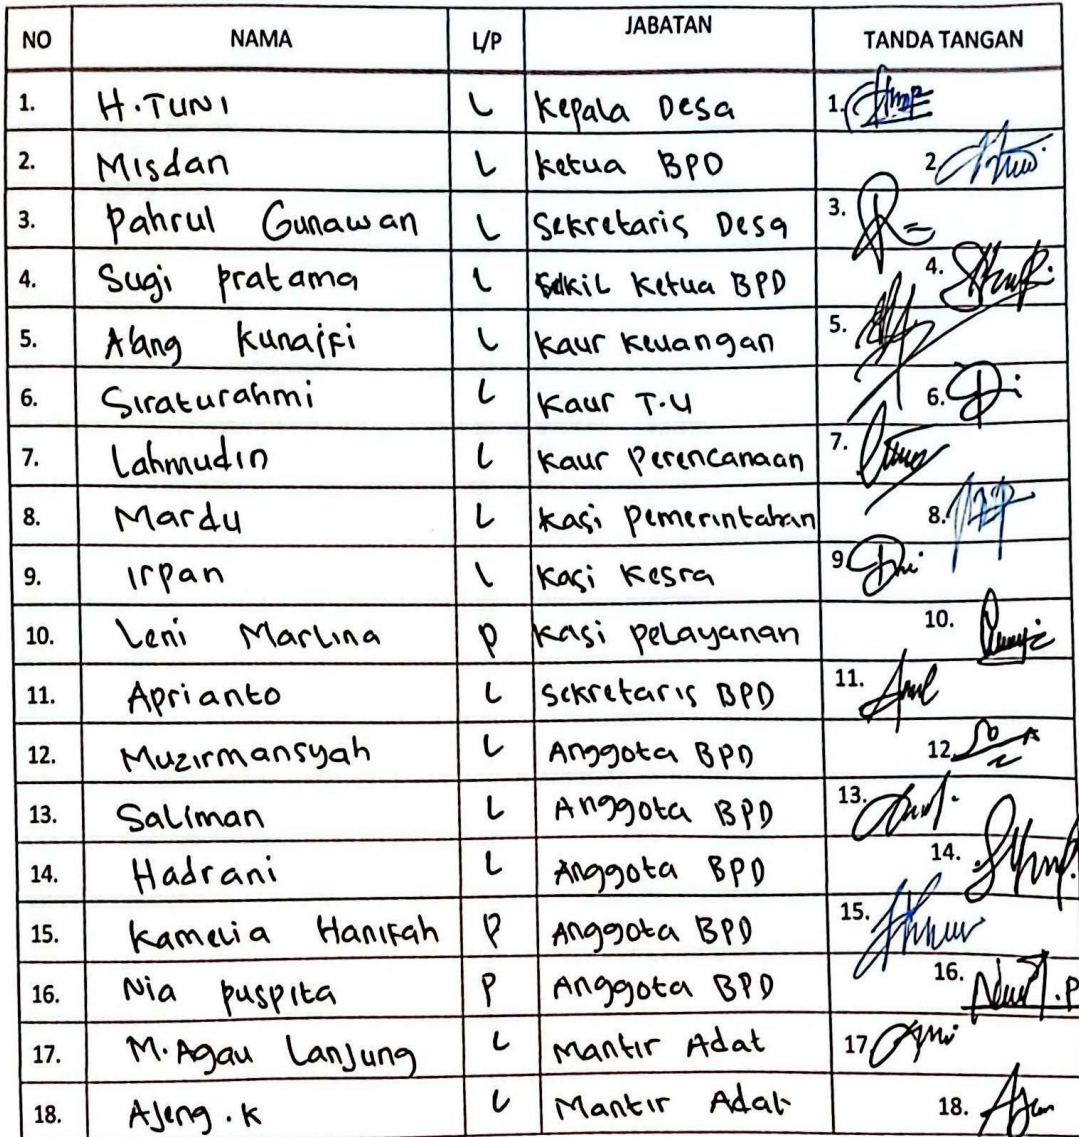 NO NAMA L/P JABATAN TANDA TANGAN
1. H. TUNI L Kepala Desa 1.
2. Misdan L Ketua BPD 2.
3. Pahrul Gunawan L Sekretaris Desa 3.
4. Sugi pratama L Ketua BPD 4.
5. Abang Kunaifi L Kaur Keuangan 5.
6. Siraturahmi L Kaur T.U 6.
7. Lahmudin L Kaur Perencanaan 7.
8. Mardu L Kasi Pemerintahan 8.
9. Irpan L Kasi Kesra 9
10. Leni Marlina P Kasi Pelayanan 10.
11. Aprianto L Sekretaris BPD 11.
12. Muzirmansyah L Anggota BPD 12
13. Saliman L Anggota BPD 13.
14. Hadrani L Anggota BPD 14.
15. Kamelia Hanifah P Anggota BPD 15.
16. Nia puspita P Anggota BPD 16.
17. M. Agau Lanjung L Mantir Adat 17
18. Ajeng . K L Mantir Adat 18.